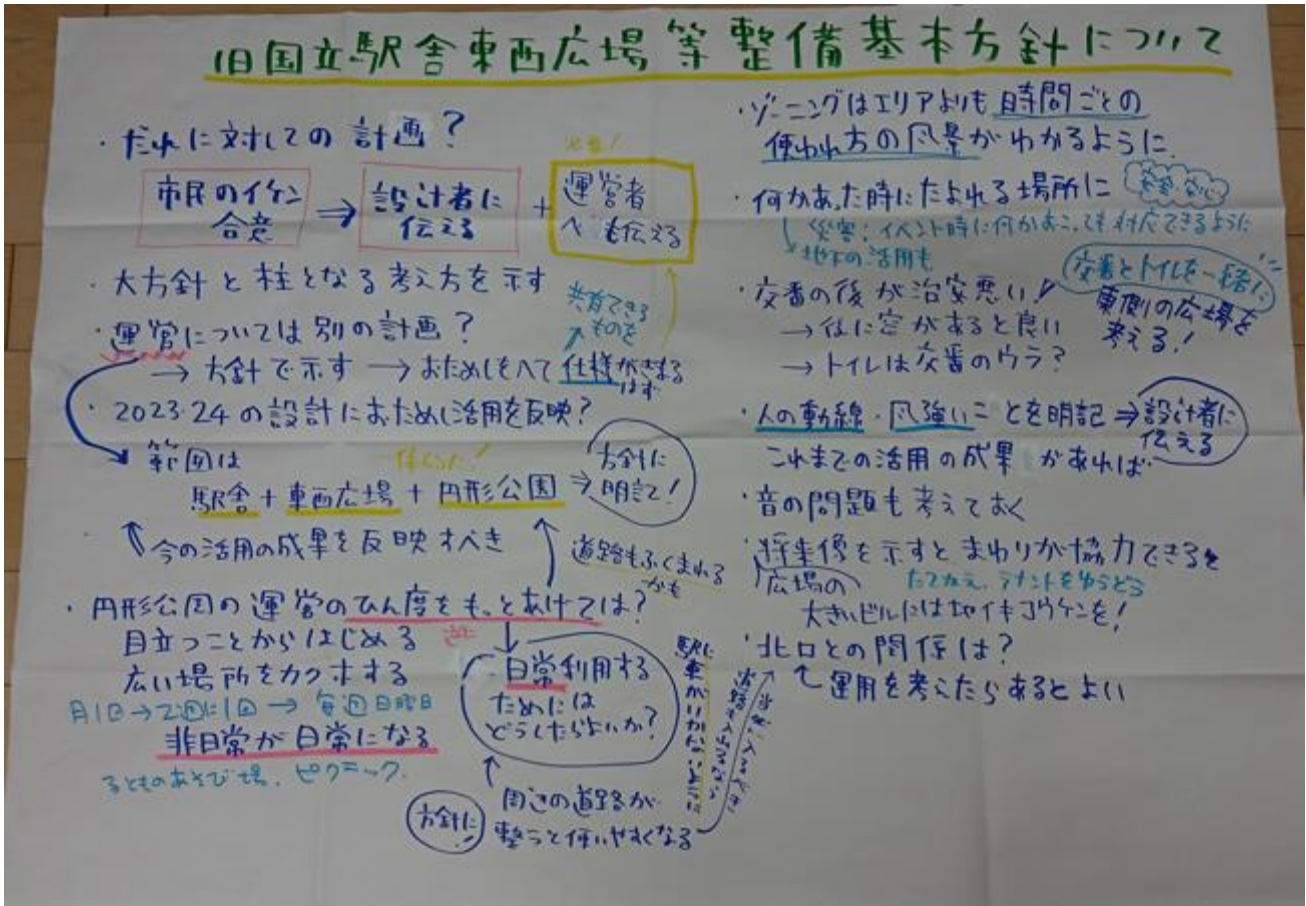 旧国立駅舎東西広場等整備基本方針について
・だれに対しての計画?
市民のイケン
合意
⇒
設計者に
伝える
+
必要!
運営者
へも伝える
・大方針と柱となる考え方を示す
・運営については別の計画?
共有できる
ものを
→ 方針で示す → おためしをへて仕様がきまる
はず
・2023・24の設計におためし活用を反映?
範囲は
一体的に!
駅舎+東西広場+円形公園 ⇒
方針に
明記!
今の活用の成果を反映すべき
道路もふくまれる
かも
・円形公園の運営のひん度をもっとあげては?
目立つことからはじめる
広い場所をカクホする
月1回→2週に1回→毎週日曜日
非日常が日常になる
こどものあそび場、ピクニック
・日常利用する
ためには
どうしたらよいか?
方針に!
周辺の道路が
整うと使いやすくなる
駅に
車がいかないように
・ゾーニングはエリアよりも時間ごとの
使われ方の風景がわかるように
・何かあった時にたよれる場所に
安全・安心
災害・イベント時に何かおこっても対応できるように
地下の活用も
・交番の後が治安悪い!
→ 後に窓があると良い
→ トイレは交番のウラ?
交番とトイレを一緒に
東側の広場を
考える!
・人の動線・風強いことを明記 ⇒ 設計者に
伝える
これまでの活用の成果があれば
・音の問題も考えておく
・将来像を示すとまわりが協力できる
広場の
たてかえ、テナントをゆうどう
大きいビルには地イキコウケンを!
・北口との関係は?
運用を考えたらあるとよい